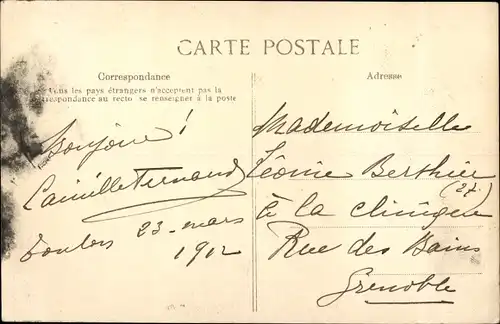 CARTE POSTALE
Correspondance
Tous les pays étrangers n'acceptent pas la
correspondance au recto se renseigner à la poste
Bonjour!
Camille Fernand
Toulon 23-mars
1912
Adresse
Mademoiselle
Léonie Berthier
(27)
à la
Rue des Bains
Grenoble